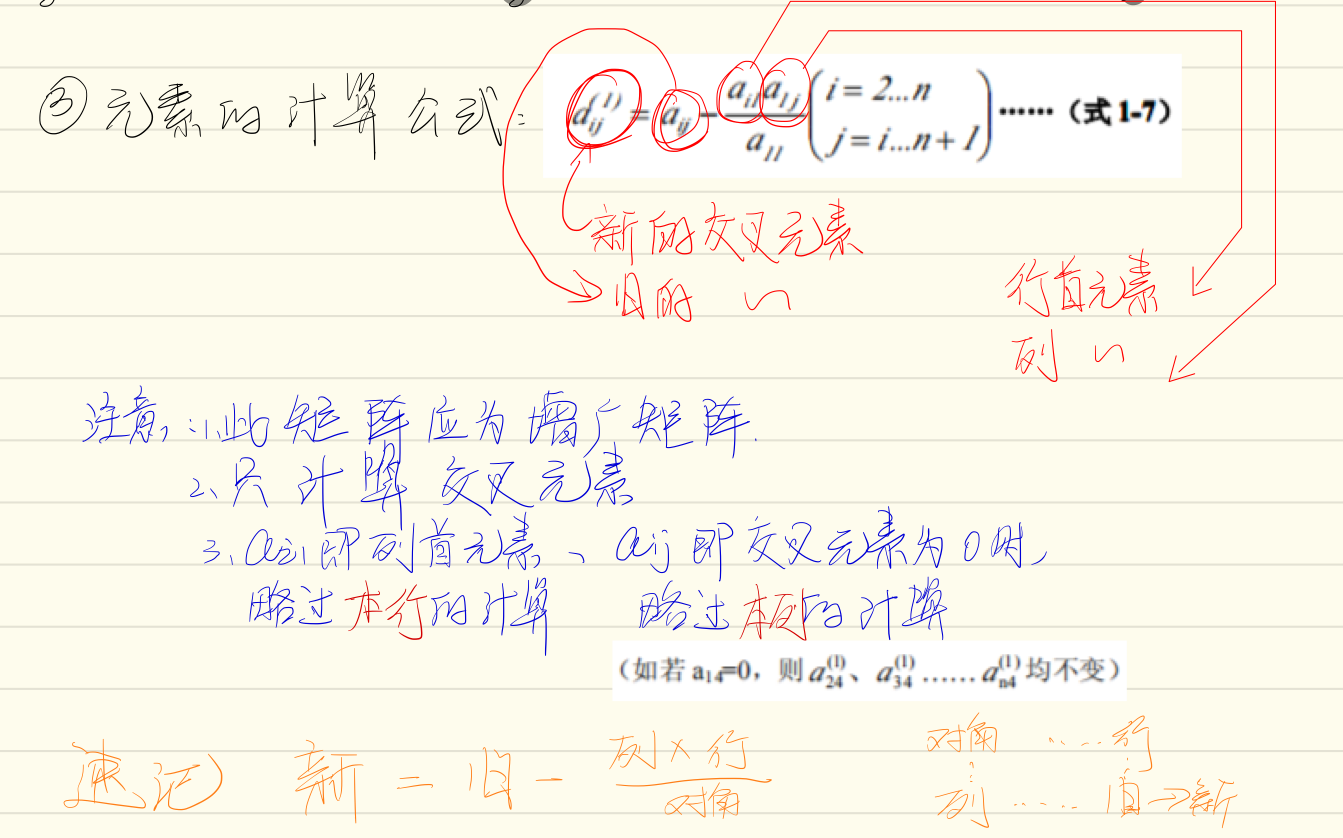 ③元素的计算公式: d_{ij}^{(1)} = a_{ij} - \frac{a_{i1}a_{1j}}{a_{11}} \begin{pmatrix} i=2...n \\ j=i...n+1 \end{pmatrix} ······(式1-7)
新的交叉元素
旧的 〃
行首元素
列 〃
注意: 1、此矩阵应为增广矩阵.
2、只计算交叉元素
3、a_{i1}即列首元素、a_{ij}即交叉元素为0时,
略过本行的计算 略过本列的计算
(如若a_{14}=0,则a_{24}^{(1)}、a_{34}^{(1)}……a_{n4}^{(1)}均不变)
速记) 新 = 旧 - \frac{列×行}{对角}
对角 ……行
⋮ ⋮
列 …… 旧→新